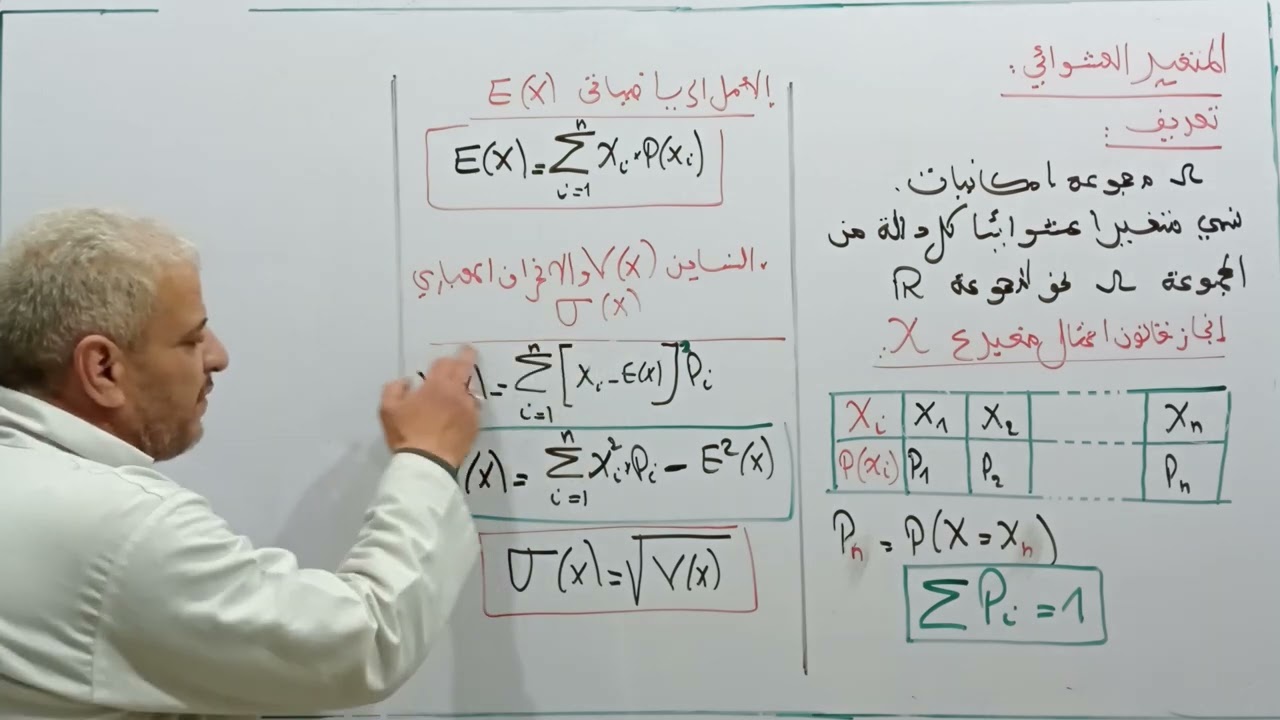 المتغير العشوائي:
تعريف:
Ω مجموعة امكانيات.
نسمي متغيرا عشوائيا كل دالة من
المجموعة Ω نحو المجموعة ℝ
إنجاز قانون احتمال متغير ع X:
Xi X1 X2 ------ Xn
P(xi) P1 P2 ------ Pn
Pn = P(X=Xn)
∑Pi = 1
الأمل الرياضياتي E(X)
E(X) = ∑_{i=1}^{n} Xi × P(Xi)
. التباين V(X) والانحراف المعياري
σ(X)
(x) = ∑_{i=1}^{n} [Xi - E(x)]² Pi
(X) = ∑_{i=1}^{n} Xi² × Pi - E²(X)
σ(x) = √V(x)